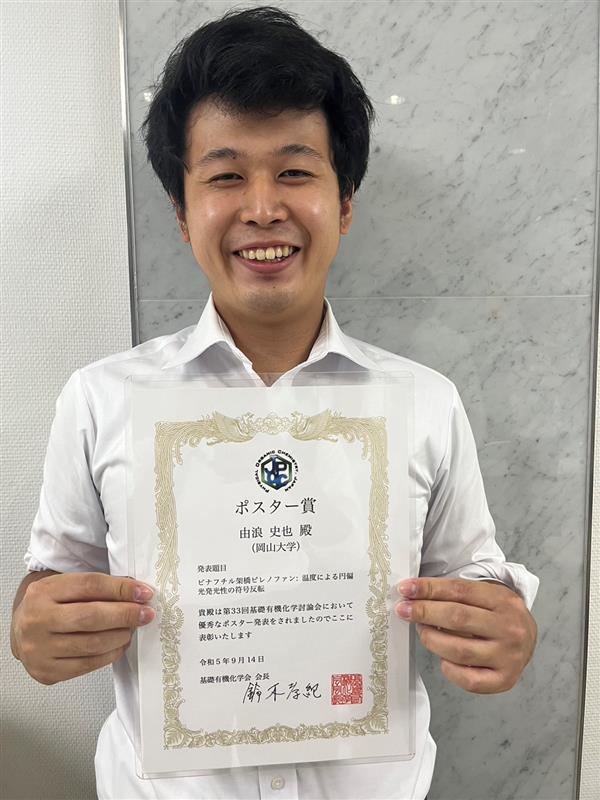 PHYSICAL ORGANIC CHEMISTRY, JAPAN
ポスター賞
由浪 史也 殿
(岡山大学)
発表題目
ビナフチル架橋ピレノファン: 温度による円偏
光発光性の符号反転
貴殿は第33回基礎有機化学討論会において
優秀なポスター発表をされましたのでここに
表彰いたします
令和5年9月14日
基礎有機化学会 会長
鈴木孝紀